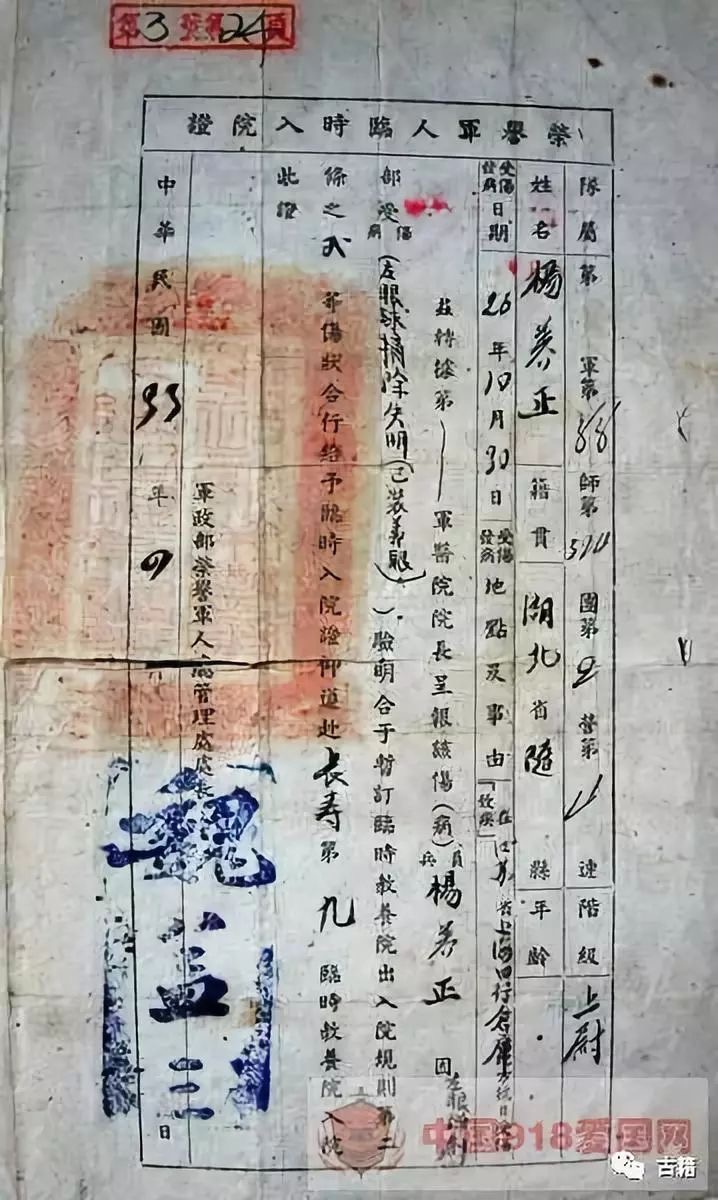 第3號第24頁
榮譽軍人臨時入院證
隊屬第 軍第88師第524團第2營第 連階級上尉
姓名楊養正籍貫湖北省隨縣年齡
受傷發病日期26年10月30日受傷發病地點及事由「在江蘇省上海四行倉庫
茲轉據第一軍醫院院長呈報該傷(病)員兵楊養正因左眼
部受傷病(左眼球摘除失明(已裝義眼))驗明合于暫訂臨時教養院出入院規則第二
條之弍等傷狀合行給予臨時入院證仰逕赴長壽第九臨時教養院入院
此證
軍政部榮譽軍人 管理處處長
魏益三
中華民國33年 月 日
中国918爱国网
古籍